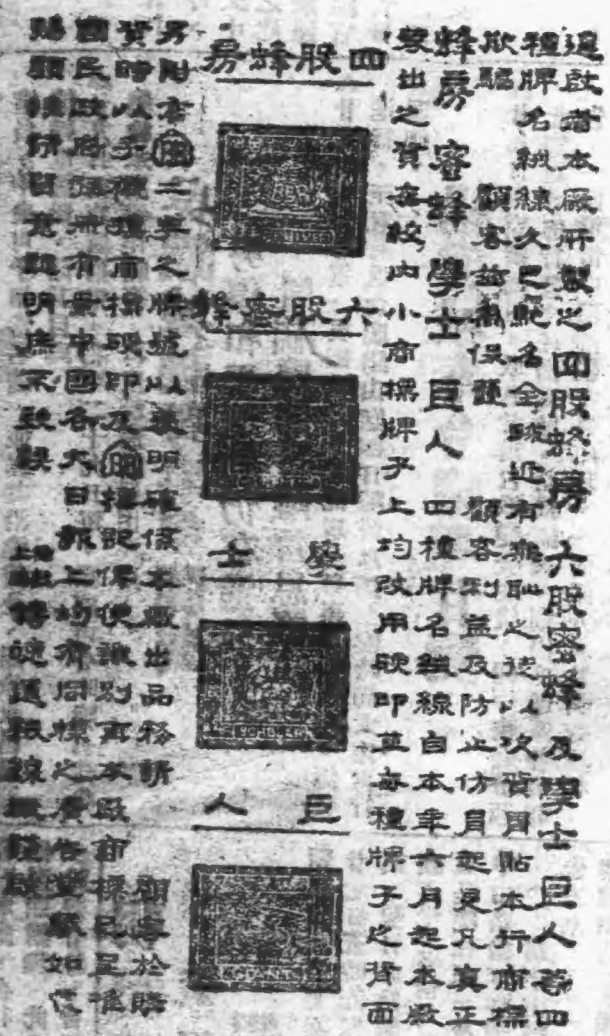 逕啟者本廠所製之四股蜂房六股密蜂及學士巨人等四
種牌名絨線久已馳名全球近有無恥之徒以次貨冒貼本行商標
欺騙 顧客茲為保護 顧客利益及防止仿冒起見凡真正
蜂房密蜂學士巨人四種牌名絨線自本年六月起本廠
製出之貨每絞內小商標牌子上均改用硬印並每種牌子之背面
四股蜂房
六股密蜂
學士
巨人
另附有二字之牌號以表明確係本廠出品務請 顧客於購
貨時以手商標硬印及標記俾便識別再本廠商標已呈准
國民政府註冊有案中國各大日報上均有同樣之廣告登載如蒙
賜顧務請留意認明庶不致誤 上海絨線廠謹啟